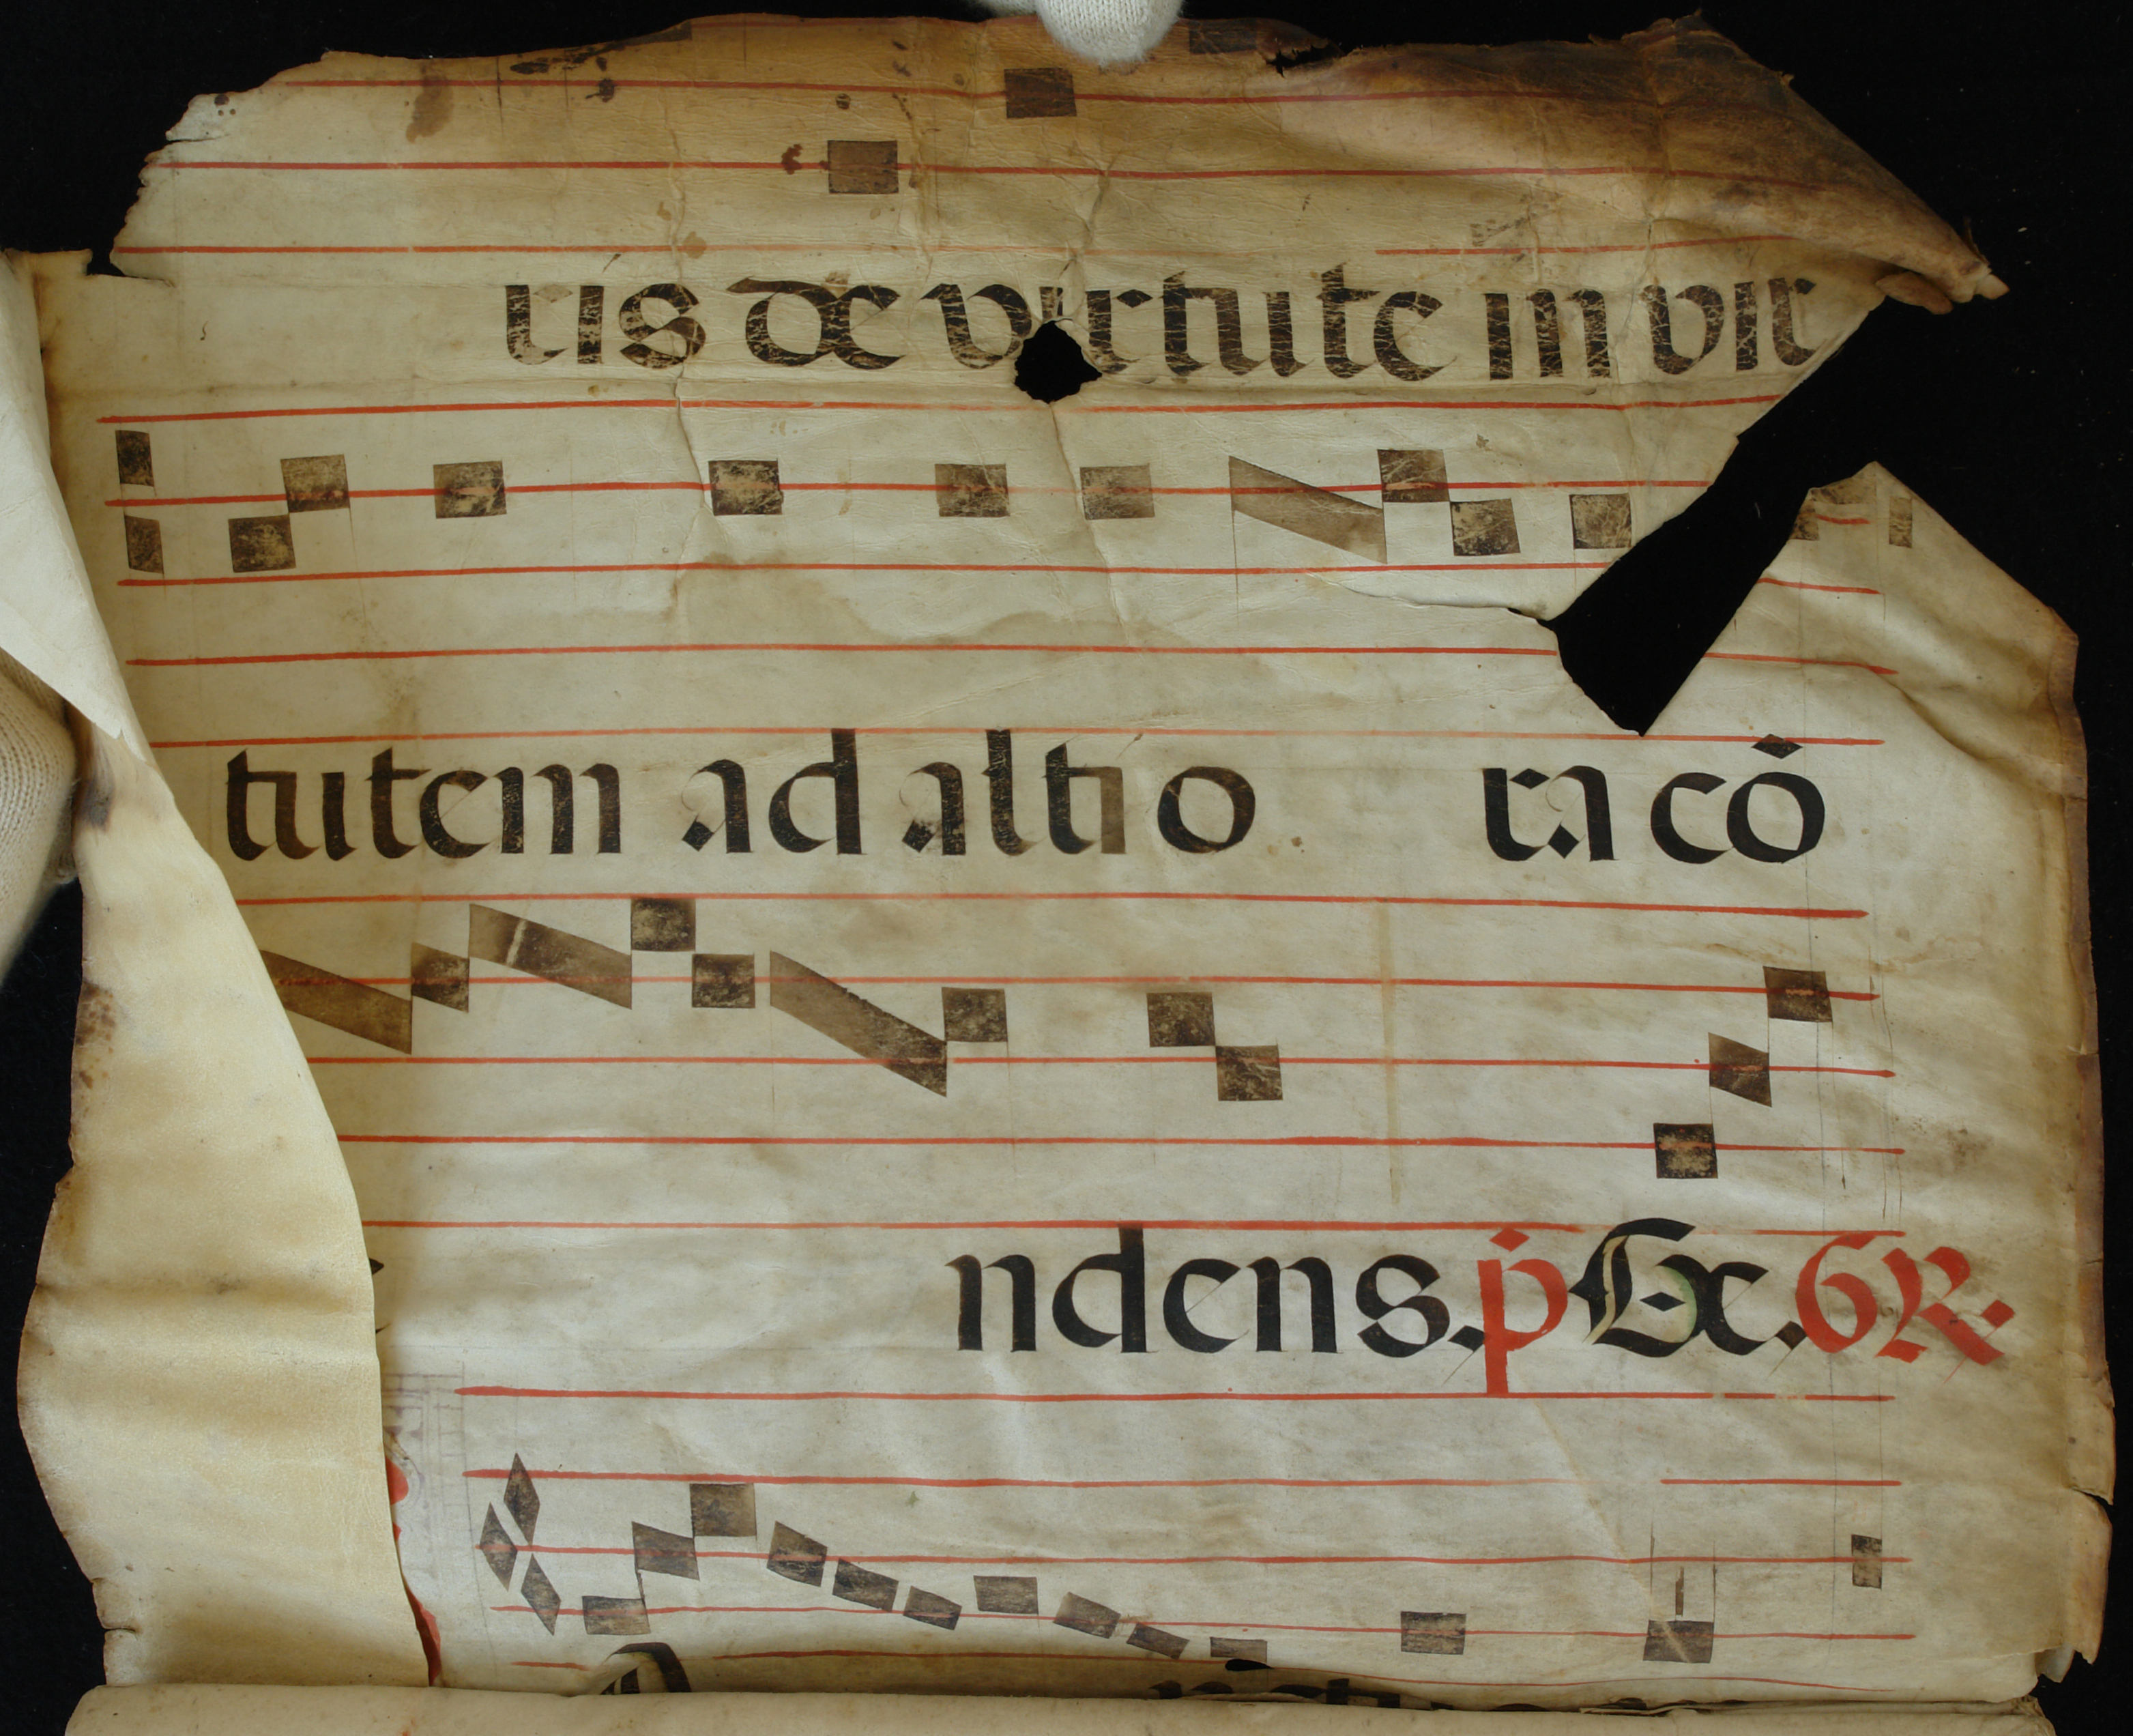 ris de virtute in vir
tutem ad altio ra cō
ndens. ṗ Ex. 6 R.